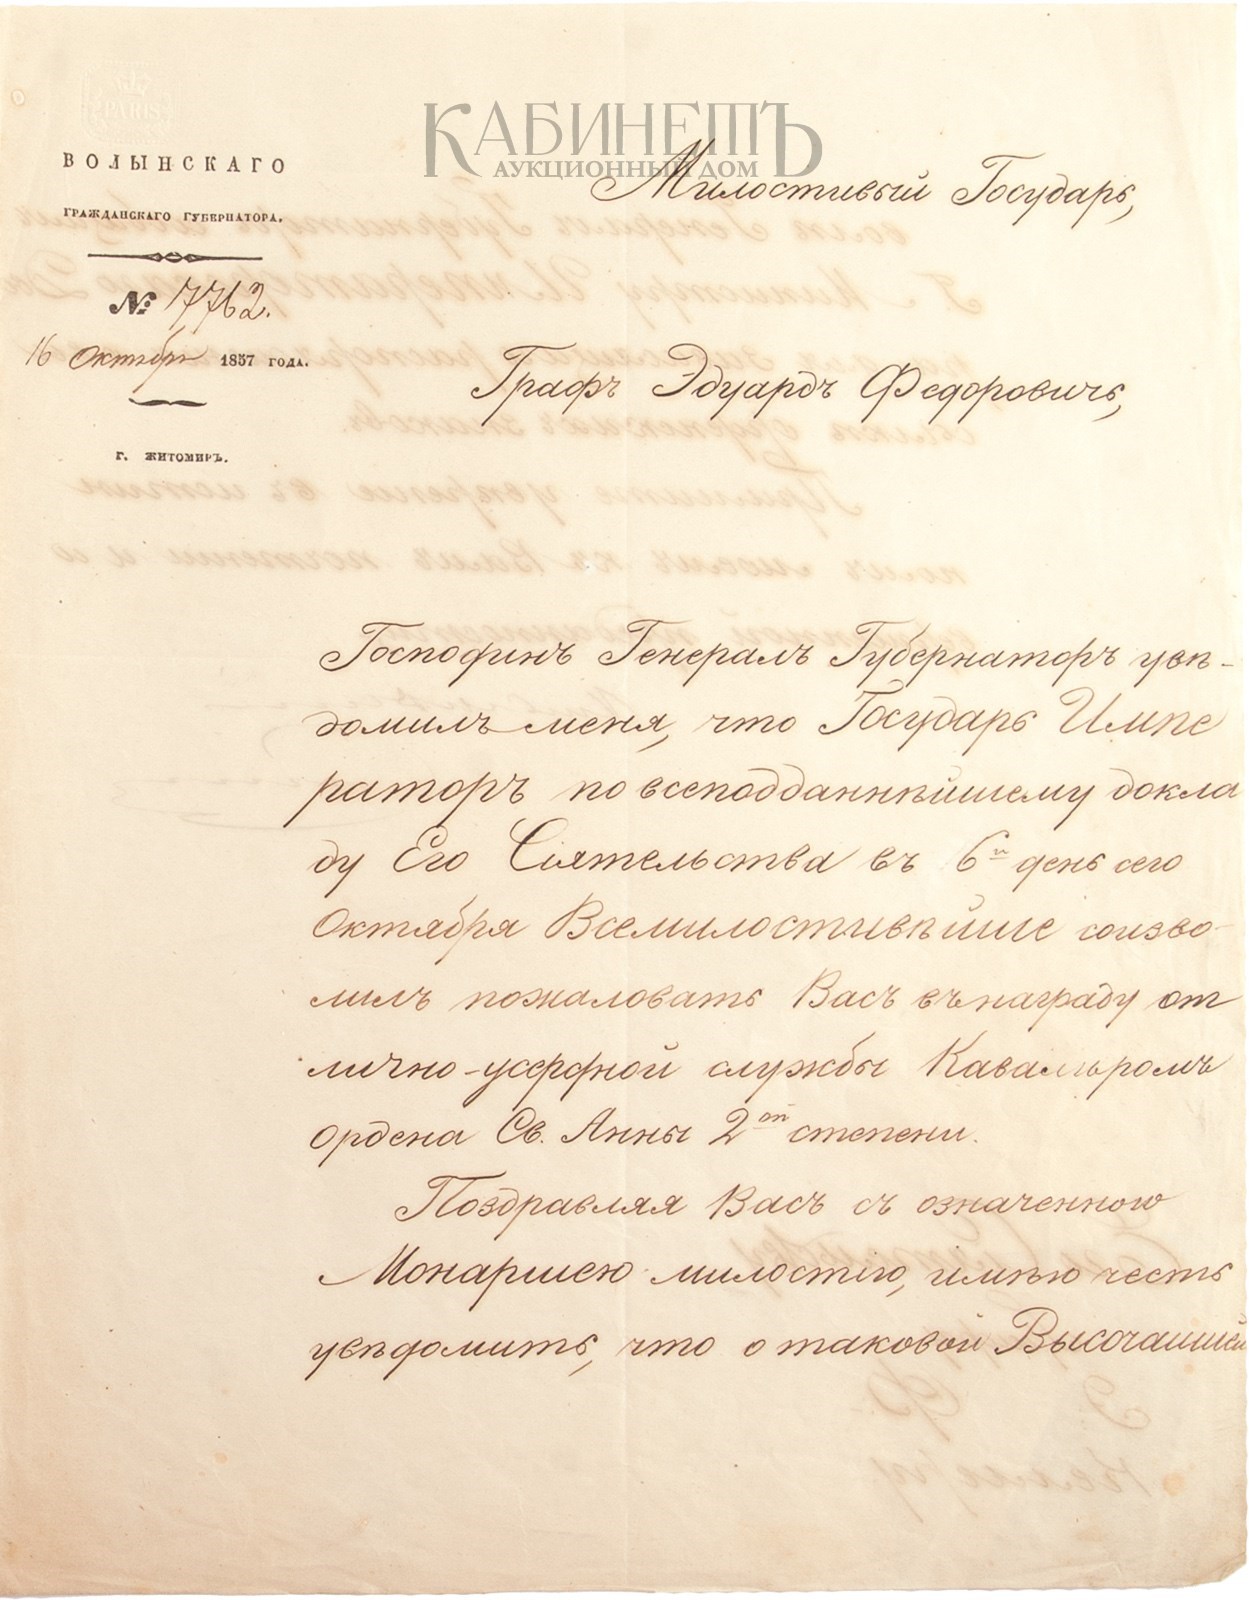 PARIS
КАБИНЕТЪ
АУКЦИОННЫЙ ДОМ
ВОЛЫНСКАГО
ГРАЖДАНСКАГО ГУБЕРНАТОРА.
№ 7762.
16 Октября 1857 ГОДА.
Г. ЖИТОМИРЪ.
Милостивый Государь,
Графъ Эдуардъ Федоровичь,
Господинъ Генералъ Губернаторъ увѣ-
домилъ меня, что Государь Импе
раторъ по всеподданнѣйшему докла
ду Его Сіятельства въ 6й день сего
Октября Всемилостивѣйше соизво-
лилъ пожаловать Васъ въ награду от
лично-усердной службы Кавалеромъ
Ордена Св. Анны 2ой степени.
Поздравляя Васъ съ означенною
Монаршею милостію, имѣю честь
увѣдомить, что о таковой Высочайшей